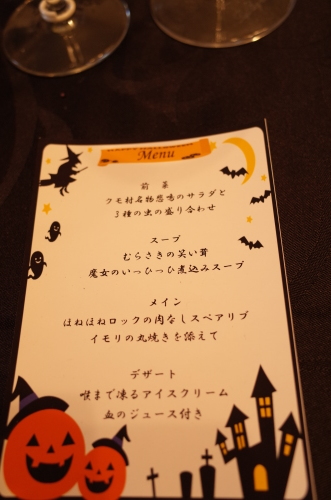 Menu
前菜
クモ村名物悲鳴のサラダと
3種の虫の盛り合わせ
スープ
むらさきの笑い茸
魔女のいっひっひ煮込みスープ
メイン
ほねほねロックの肉なしスペアリブ
イモリの丸焼きを添えて
デザート
喉まで凍るアイスクリーム
血のジュース付き